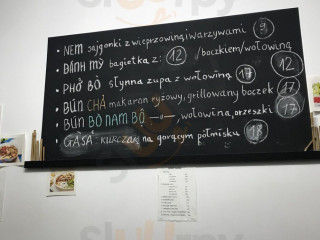 • NEM sajgonki z wieprzowiną i warzywami 9
• BÁNH MỲ bagietka z: 12 /boczkiem/wołowiną 12
• PHỞ BÒ słynna zupa z wołowiną 17
• BÚN CHẢ makaron ryżowy, grillowany boczek 17
• BÚN BÒ NAM BỘ —〃—, wołowina, orzeszki 17
• GÀ SẢ: kurczak na gorącym półmisku 18